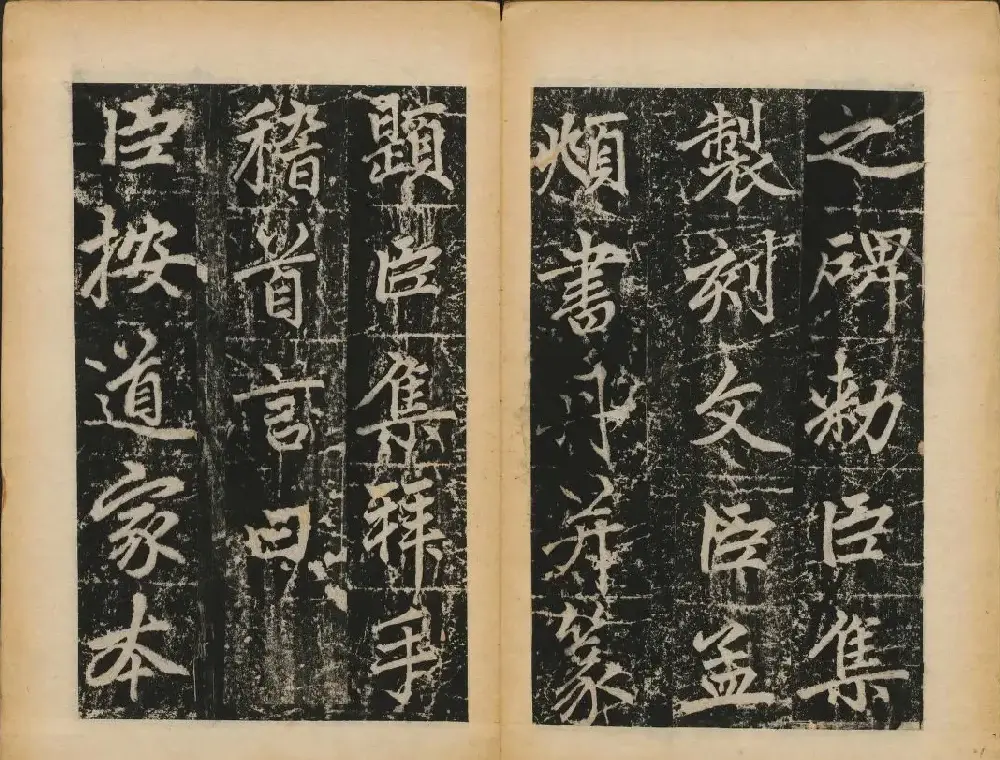 之碑勅臣集
製刻文臣孟
頫書丹并篆
題臣集拜手
稽首言曰
臣按道家本